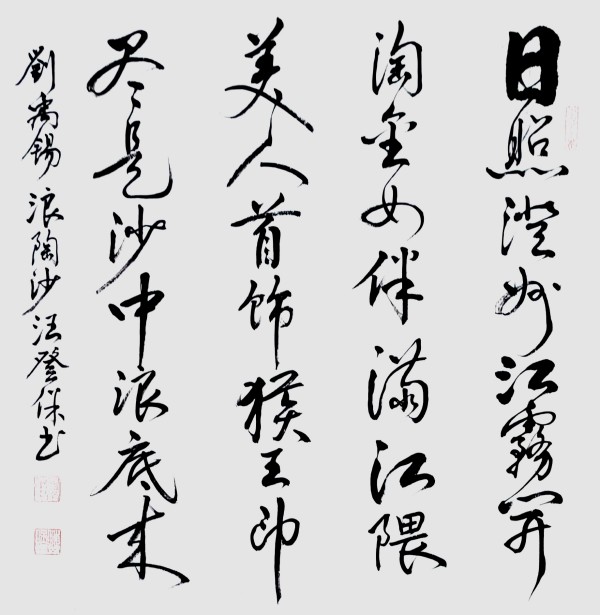 日照澄州江霧開
淘金女伴满江隈
美人首饰猴王印
尽是沙中浪底来
劉禹锡 浪陶沙 汪登保书